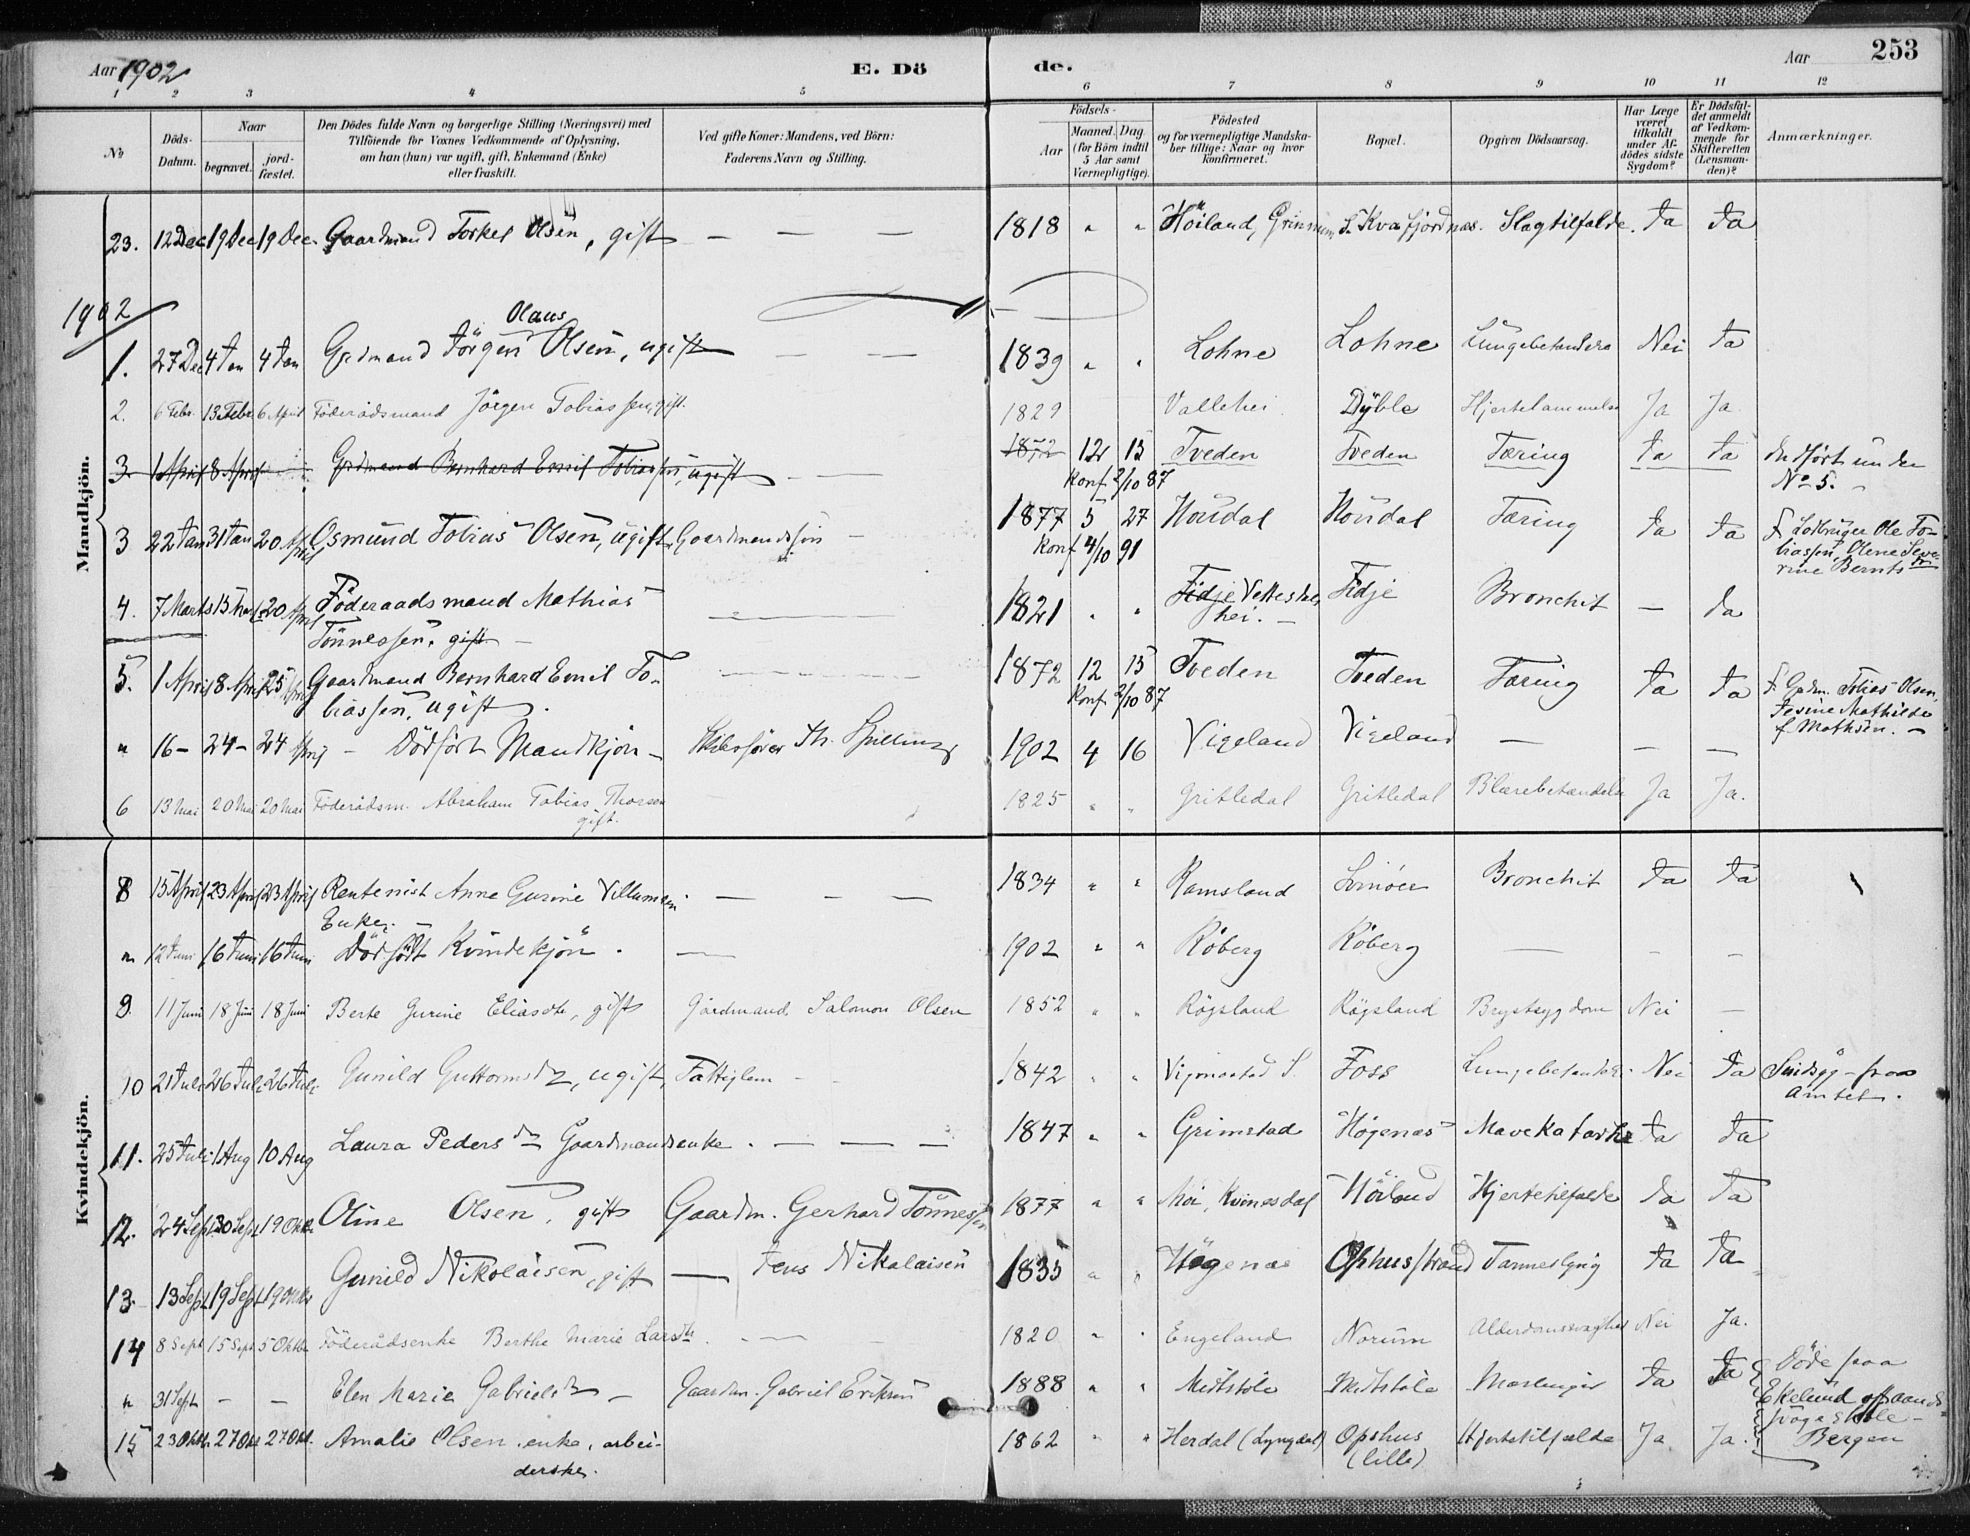 Aar 1902 E. Dö de. Aar 253
1 2 3 4 5 6 7 8 9 10 11 12
No
Döds-Datum.
Naar
begravet.
jord-fæstet.
Den Dödes fulde Navn og borgerlige Stilling (Næringsvei) med
Tilföiende for Voxnes Vedkommende af Oplysning,
om han (hun) var ugift, gift, Enkemand (Enke)
eller fraskilt.
Ved gifte Koner: Mandens, ved Börn:
Faderens Navn og Stilling.
Födsels-
Aar
Maaned. Dag.
(for Börn indtil
5 Aar samt
Værnepligtige).
Födested
og for værnepligtige Mandska-
ber tillige: Naar og hvor
konfirmeret.
Bopæl.
Opgiven Dödsaarsag.
Har Læge
været
tilkaldt
under Af-
dödes sidste
Sygdom?
Er Dödsfal-
det anmeldt
af Vedkom-
mende for
Skifteretten
(Lensman-
den)?
Anmærkninger.
Mandkjön.
23. 12 Dec 19 Dec 19 Dec. Gaardmand Torkel Olsen, gift — — — 1818 " " Höiland, Grinum S. Kvafjordnæs. Slagtilfælde. Ja Ja
1902
Olaus
1. 27 Dec 4 Jan 4 Jan Grdmand Jörgen Olsen, ugift — — 1839 " " Lohne Lohne Lungebetændelse Nei Ja
2. 6 Febr. 13 Febr 6 April Föderådsmand Jörgen Tobiassen, gift. 1829 Vallehei Dyble Hjertelammelse Ja Ja
3. 1 April 8 April Grdmand Bernhard Emil Tobiassen, ugift — — 1872 12 15 Tveden Tveden Tæring Ja Ja Indført under
Konf 2/10 87 No 5.
3 22 Jan 31 Jan 20 April Osmund Tobias Olsen, ugift, Gaardmandssön — 1877 5 27 Houdal Houdal Tæring Ja Ja F. Ledbruger Ole To-
Konf 4/10 91 biassen, Olene Seve-
rine Bernts
4. 7 Marts 15 Marts 20 April Föderaadsmand Mathias — 1821 " " Fidje Vettestøl Fidje Bronchit — Ja
Tönnessen, gift — hei. —
5. 1 April 8 April 25 April Gaardmand Bernhard Emil To- — 1872 12 15 Tveden Tveden Tæring Ja Ja F. Grdm. Tobias Olsen,
biassen, ugift. Konf 2/10 87 Jesine Mathilde
f. Mathsen. —
" 16 — 24 — 24 April — Dödfödt Mandkjön — Skibsförer Th. Spilling 1902 4 16 Vigeland Vigeland — — —
6 13 Mai 20 Mai 20 Mai Föderådsm. Abraham Tobias Thorsen 1825 " " Gritledal Gritledal Blærebetændelse Ja Ja.
gift.
Kvindekjön.
8 15 April 23 April 23 April Rentenist Anne Gurine Villumsen — — — 1834 " " Ramsland Svinöer Bronchit Ja Ja
Enke. —
" 12 Juni 16 Juni 16 Juni Dödfödt Kvindekjön. — 1902 " " Röberg Röberg — — —
9 11 Juni 18 Juni 18 Juni Berte Gurine Eliasdtr, gift Gårdmand Salomon Olsen 1852 " " Røgsland Røgsland Brystsygdom Nei —
10 21 Juli 26 Juli 26 Juli Gunild Guttormsd, ugift, Fattiglem — 1842 " " Vigmostad S. Foss Lungebetændelse. Nei Ja Sindsyg — fraa
Amtet.
11. 25 Juli 1 Aug 10 Aug Laura Pedersd Gaardmandsenke. — — — 1847 " " Grimstad Högenæs Mavekatarh Ja Ja
12. 24 Sept 30 Sept 19 Oktbr Oline Olsen, gift Gaardm. Gerhard Tönnessen 1877 " " Moi, Kvinesdal Höiland Hjertetilfælde Ja Ja
13. 13 Sept 19 Sept 19 Oktbr Gunild Nikolaisen, gift — Jens Nikolaisen 1835 " " Högenæs Ophusstrand Tarmeslyng Ja Ja
14 8 Sept 15 Sept 5 Oktbr Föderådsenke Berthe Marie Larsdtr. — 1820 " " Engeland Norum Alderdomssvaghed Nei Ja.
" 31 Sept — — Elen Marie Gabrielsd — Gaardm. Gabriel Eriksen 1888 " " Midtstøle Midtstøle Meslinger Ja Ja Döde paa
Ekelund aands-
svage skole —
15 23 Oktbr 27 Okt 27 Okt. Amalie Olsen, enke, arbei- 1862 " " Herdal (Lyngdal) Opshus Hjertetilfælde Ja Ja. Bergen
derske. (lille)